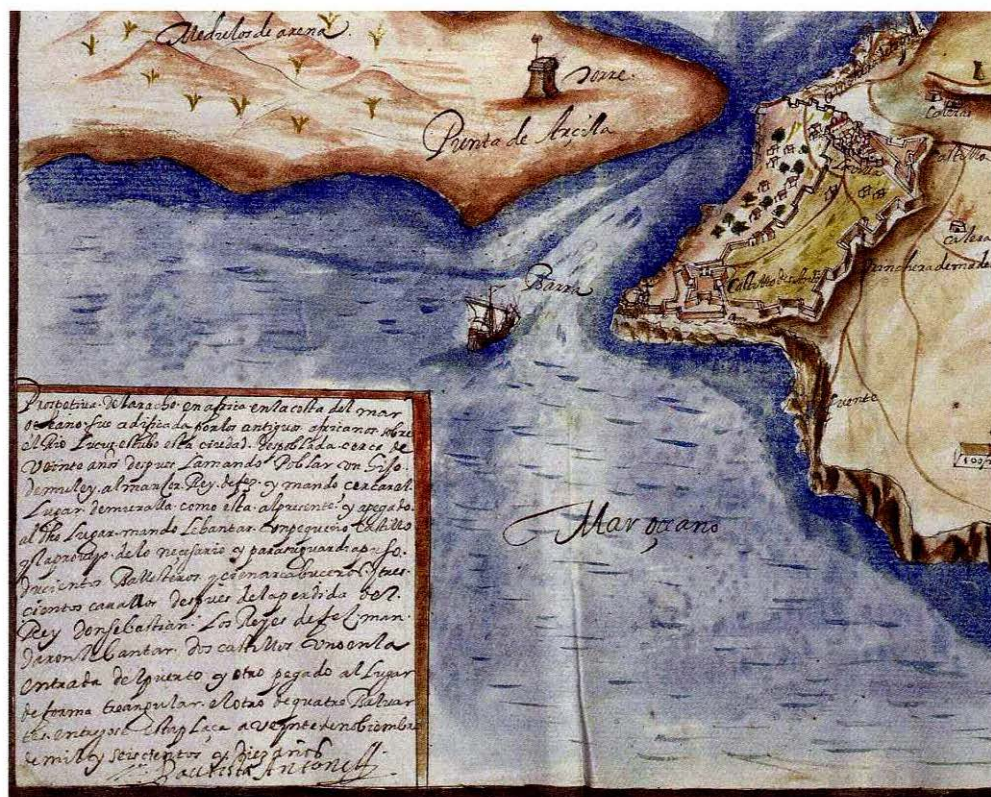 Medulos de arena.
Torre.
Punta de Arçilla
Caleras
Castillo
Villa
Calera
Barra
Trinchera de made
Fuente
Mar oçeano
Prospetiva. de larache. en africa en la costa del mar
oceano. fue adificada por los antiguos africanos sobre
el Rio Lucus. estubo esta ciudad. despoblada. cerca de
Veinte años despues La mando Poblar un hijo.
de muley. almansor Rey. de fez. y mando cercar el.
Lugar. de murada. como esta. al presente. y apegado.
al dho Lugar. mando lebantar. un pequeño Castillo
y la proveyo. de lo necesario y para su guardia puso.
Ducientos Ballesteros y cien arcabuceros y tres.
cientos cavallos despues de la perdida del.
Rey don sebastian. Los Reyes de fez. man.
daron lebantar. dos castillos uno en la
entrada del puerto y otro pegado al Lugar
de forma treangular. el otro de quatro Baluar
tes. entregose Esta plaça a veynte de nobiembre
de mill y seiscientos y Diez años
Bautista Antonelli.